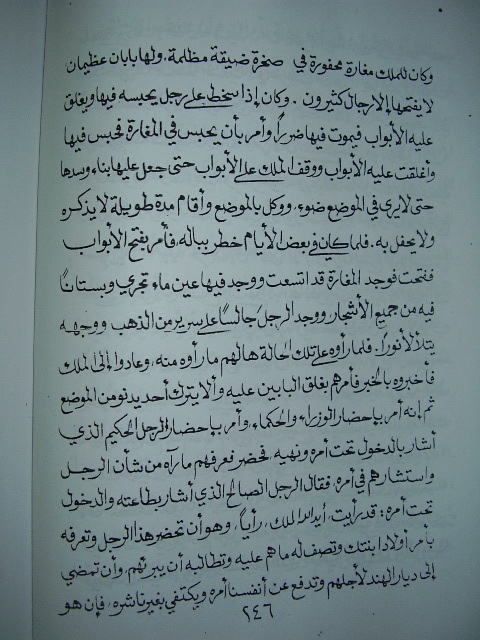 وكان للملك مغارة محفورة في صخرة ضيقة مظلمة، ولها بابان عظيمان
لا يفتحها إلا رجال كثيرون. وكان إذا سخط على رجل يحبسه فيها ويغلق
عليه الأبواب فيموت فيها ضرراً وأمر بأن يحبس في المغارة فحبس فيها
وأغلقت عليه الأبواب ووقف الملك على الأبواب حتى جعل عليها بناء وسدها
حتى لا يرى في الموضع ضوء، ووكل بالموضع وأقام مدة طويلة لا يذكره
ولا يحفل به. فلما كان في بعض الأيام خطر بباله، فأمر بفتح الأبواب
ففتحت فوجد المغارة قد اتسعت ووجد فيها عين ماء تجري وبستاناً
فيه من جميع الأشجار ووجد الرجل جالساً على سرير من الذهب ووجهه
يتلألأ نوراً. فلما رأوه على تلك الحالة هالهم ما رأوه منه، وعادوا إلى الملك
فأخبروه بالخبر فأمرهم بغلق البابين عليه وألا يترك أحد يدنو من الموضع
ثم إنه أمر بإحضار الوزراء والحكماء، وأمر بإحضار الرجل الحكيم الذي
أشار بالدخول تحت أمره ونهيه، فحضر فعرفهم ما رآه من شأن الرجل
واستشارهم في أمره، فقال الرجل الصالح الذي أشار بطاعته والدخول
تحت أمره: قد رأيت، أيد الله الملك، رأياً، وهو أن تحضر هذا الرجل وتعرفه
بأمر أولاد ابنتك وتصف له ما هم عليه وتطالبه أن يبرئهم، وأن تمضي
إلى ديار الهند لأجلهم وتدفع عن أنفسنا أمره ويكتفي بغيرنا شره، فإن هو
٢٤٦